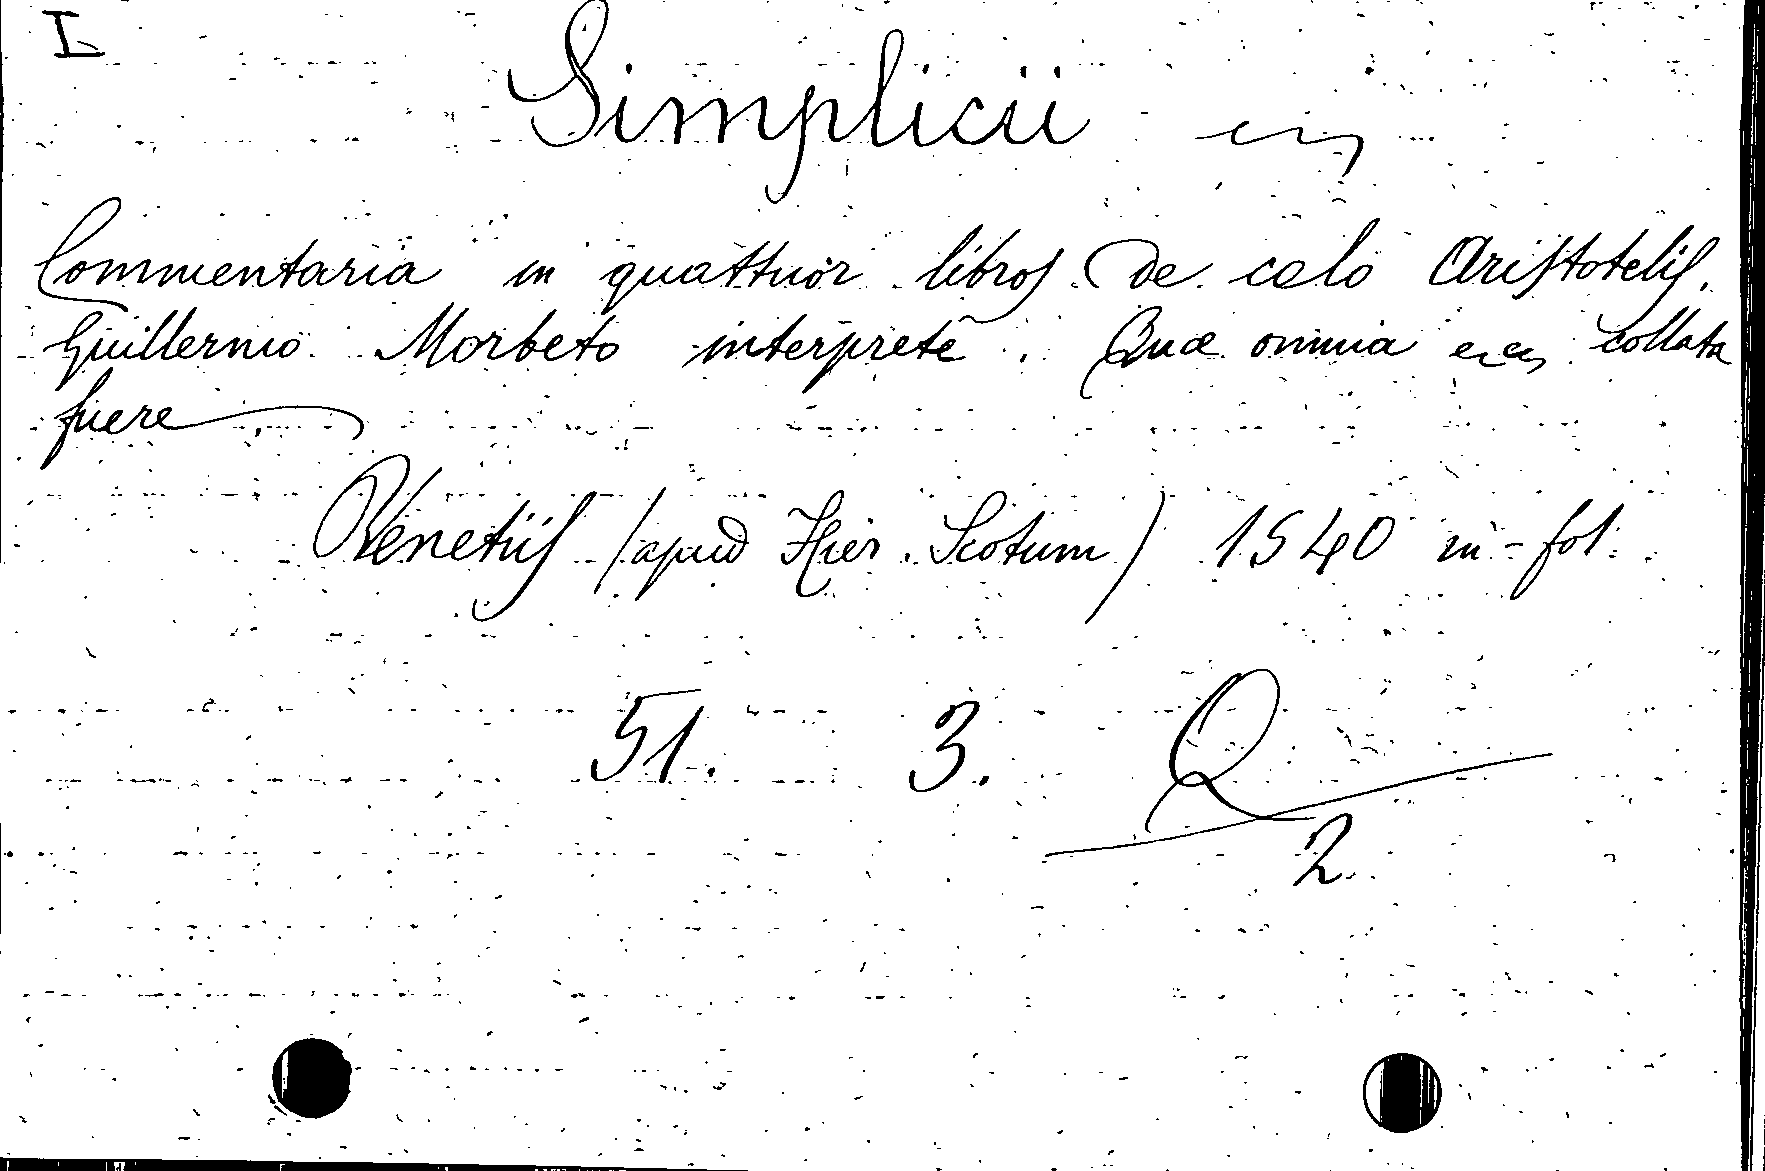 I
Simplicii
Commentaria in quattuor libros de celo Aristotelis.
Guillermo Morbeto interprete. Quæ omnia collata
fuere
Venetiis (apud Hier. Scotum) 1540 in-fol.
51. 3. Q
2